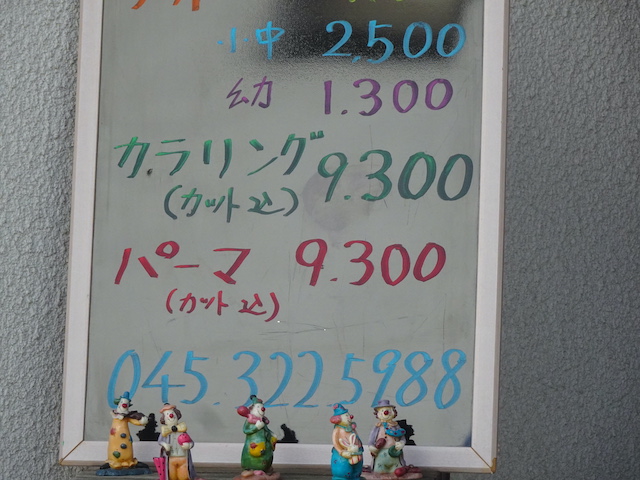 小中 2,500
幼 1.300
カラリング 9.300
(カット込)
パーマ 9.300
(カット込)
045.322.5988